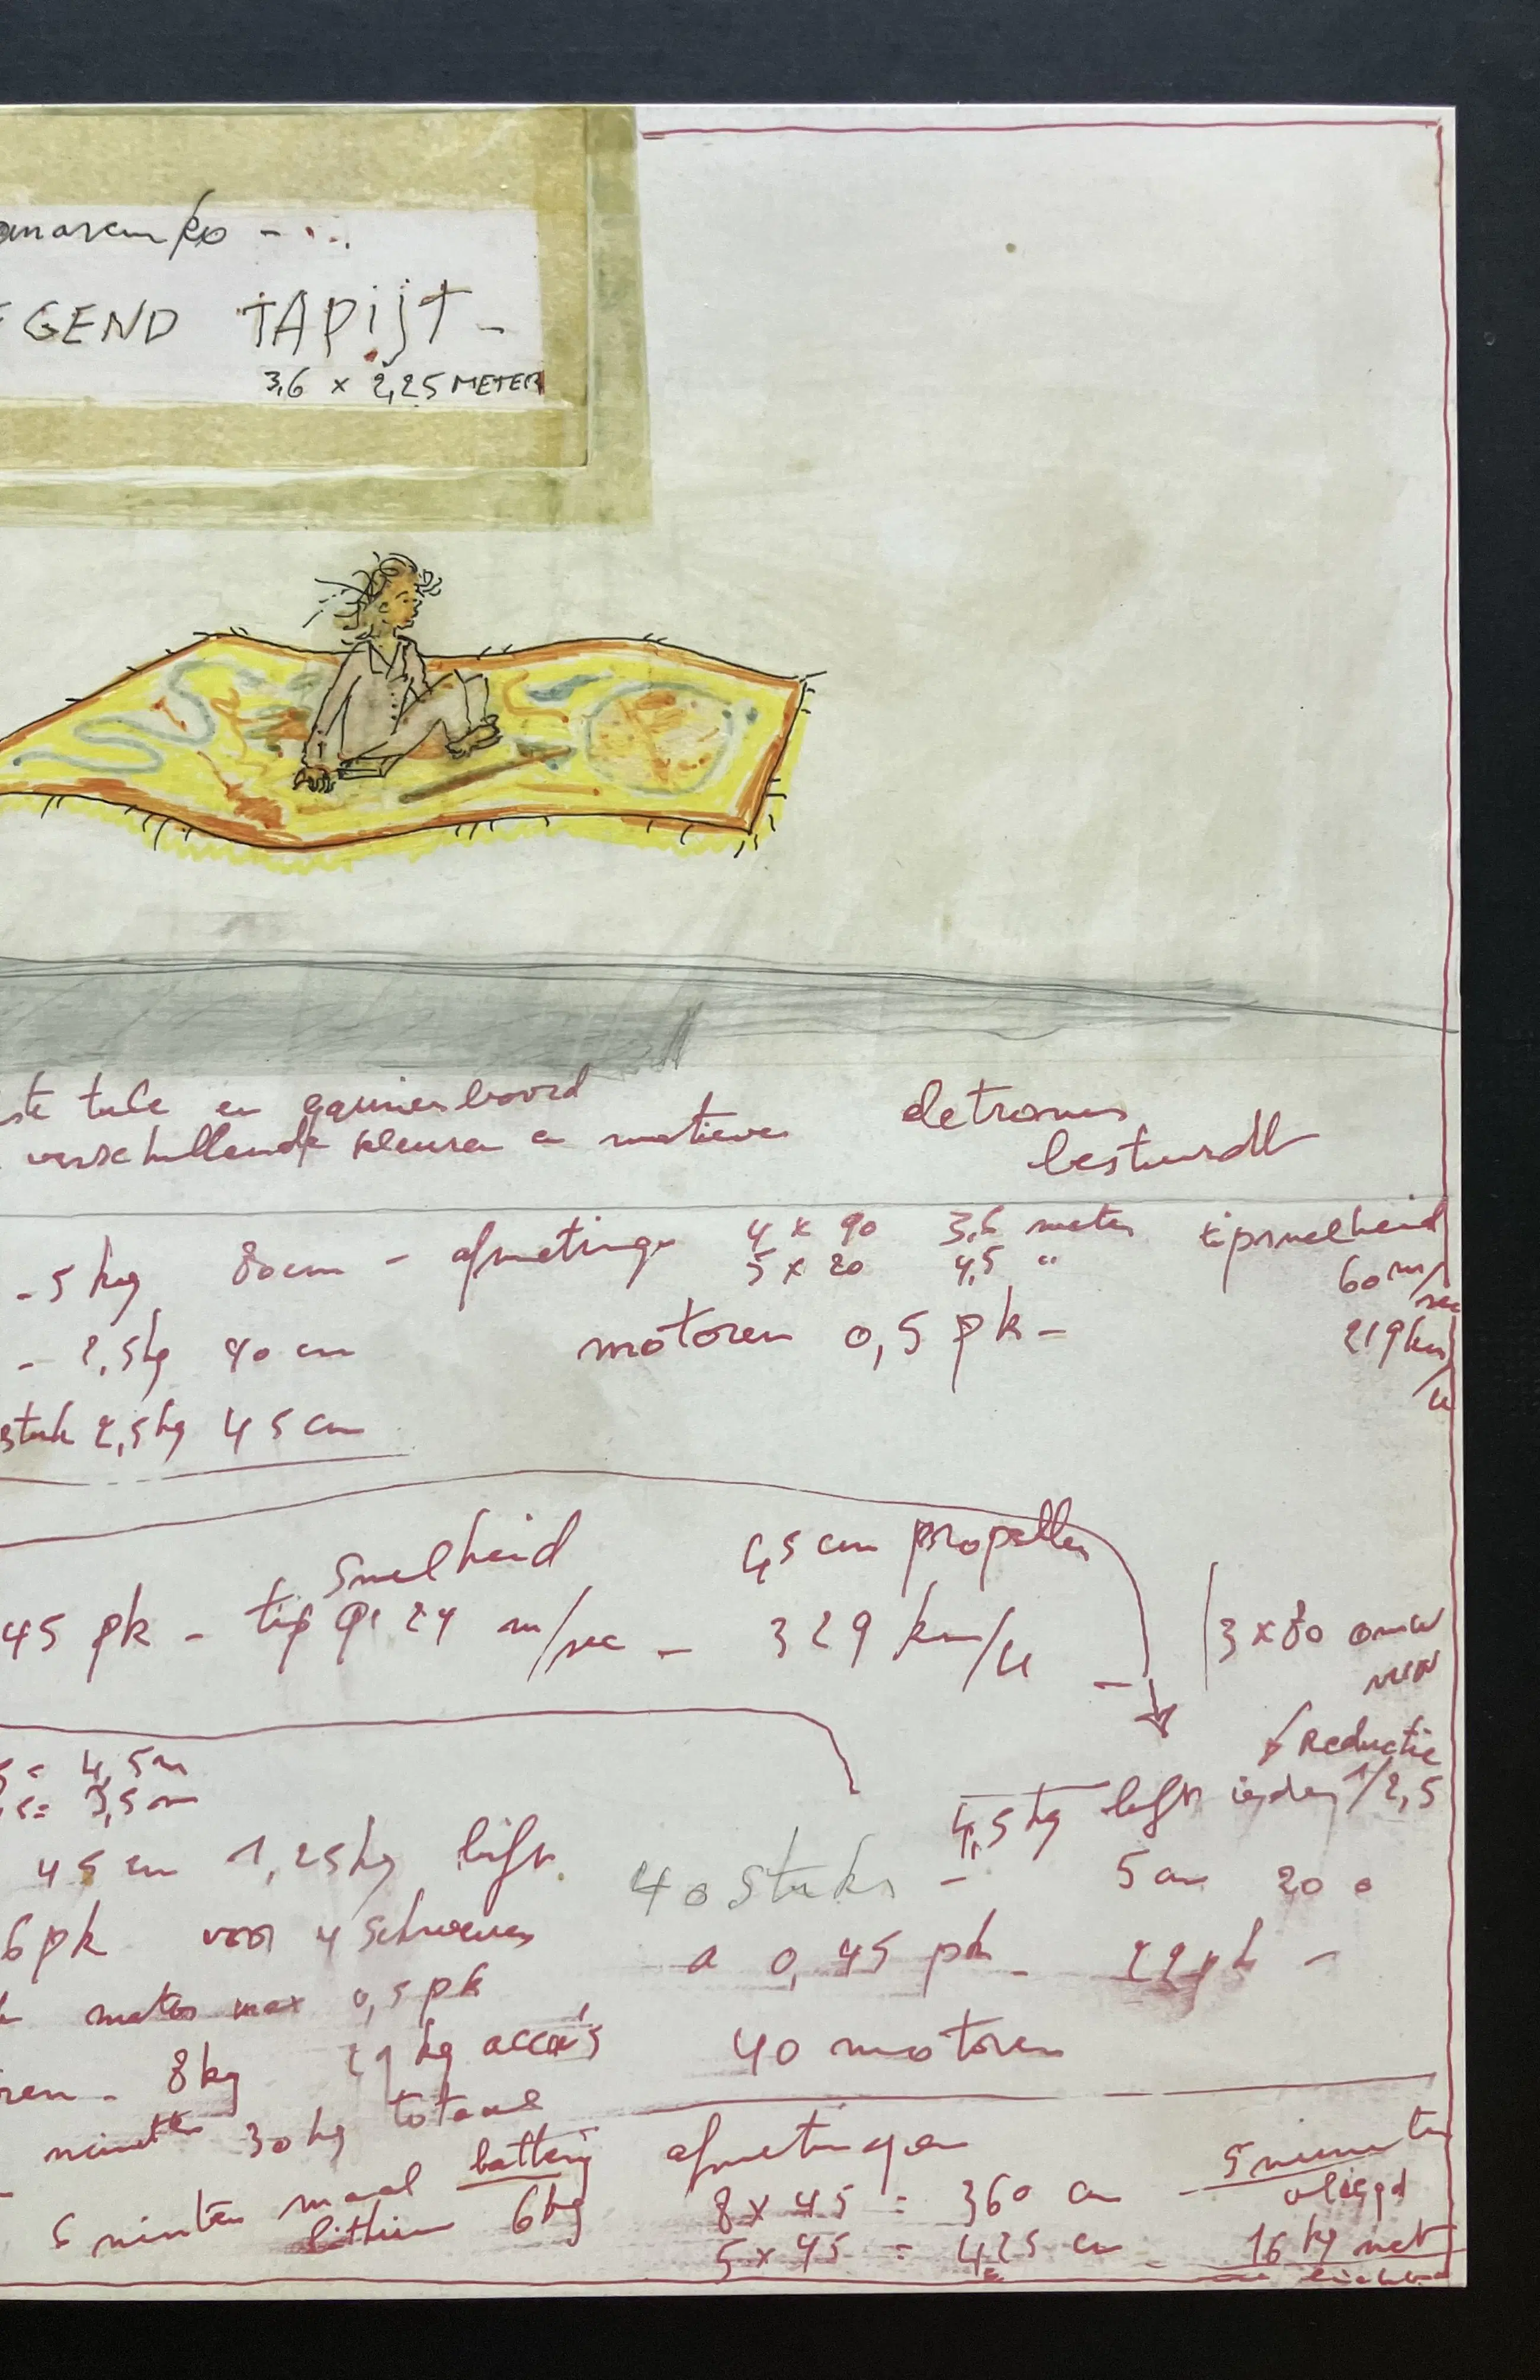 anarenko -...
EGEND TAPIJT -
3,6 x 2,25 METER
tule en garnierboord
verschillende kleuren en motieven
eletronies
bestuurdt
- 5 kg 80 cm - afmetinge 4 x 90 3,6 meter tipsnelheid
5 x 20 4,5 " 60 m/sec
- 2,5 kg 90 cm motoren 0,5 pk - 219 km/u
stuk 2,5 kg 45 cm
snelheid 45 cm propeller
45 pk - tip 91 24 m/sec - 329 km/u - 3 x 80
Reductie
= 4,5 m
= 3,5 m
4,5 kg lift ieder 1/2,5
45 cm 1,25 kg lift 40 stuks - 5 cm 20 0
6 pk voor 4 schroeven a 0,45 pk -
motor max 0,5 pk
- 8 kg kg accu's 40 motoren
minuten 30 kg totaal
5 minuten maal battery afmetingen 5 minuten
lithium 6 kg 8 x 45 = 360 cm - vliegd
5 x 45 = 425 cm - 16 kg met